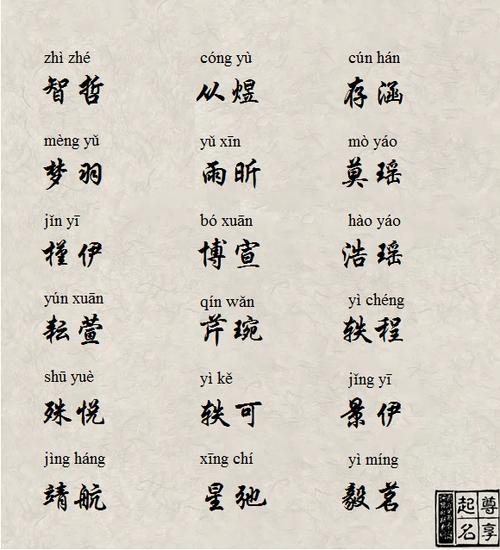 zhì zhé cóng yù cún hán
智哲 从煜 存涵
mèng yǔ yǔ xīn mò yáo
梦羽 雨昕 莫瑶
jǐn yī bó xuān hào yáo
槿伊 博宣 浩瑶
yún xuān qín wǎn yì chéng
耘萱 芹琬 轶程
shū yuè yì kě jǐng yī
殊悦 轶可 景伊
jìng háng xīng chí yì míng
靖航 星弛 毅茗
尊享
起名